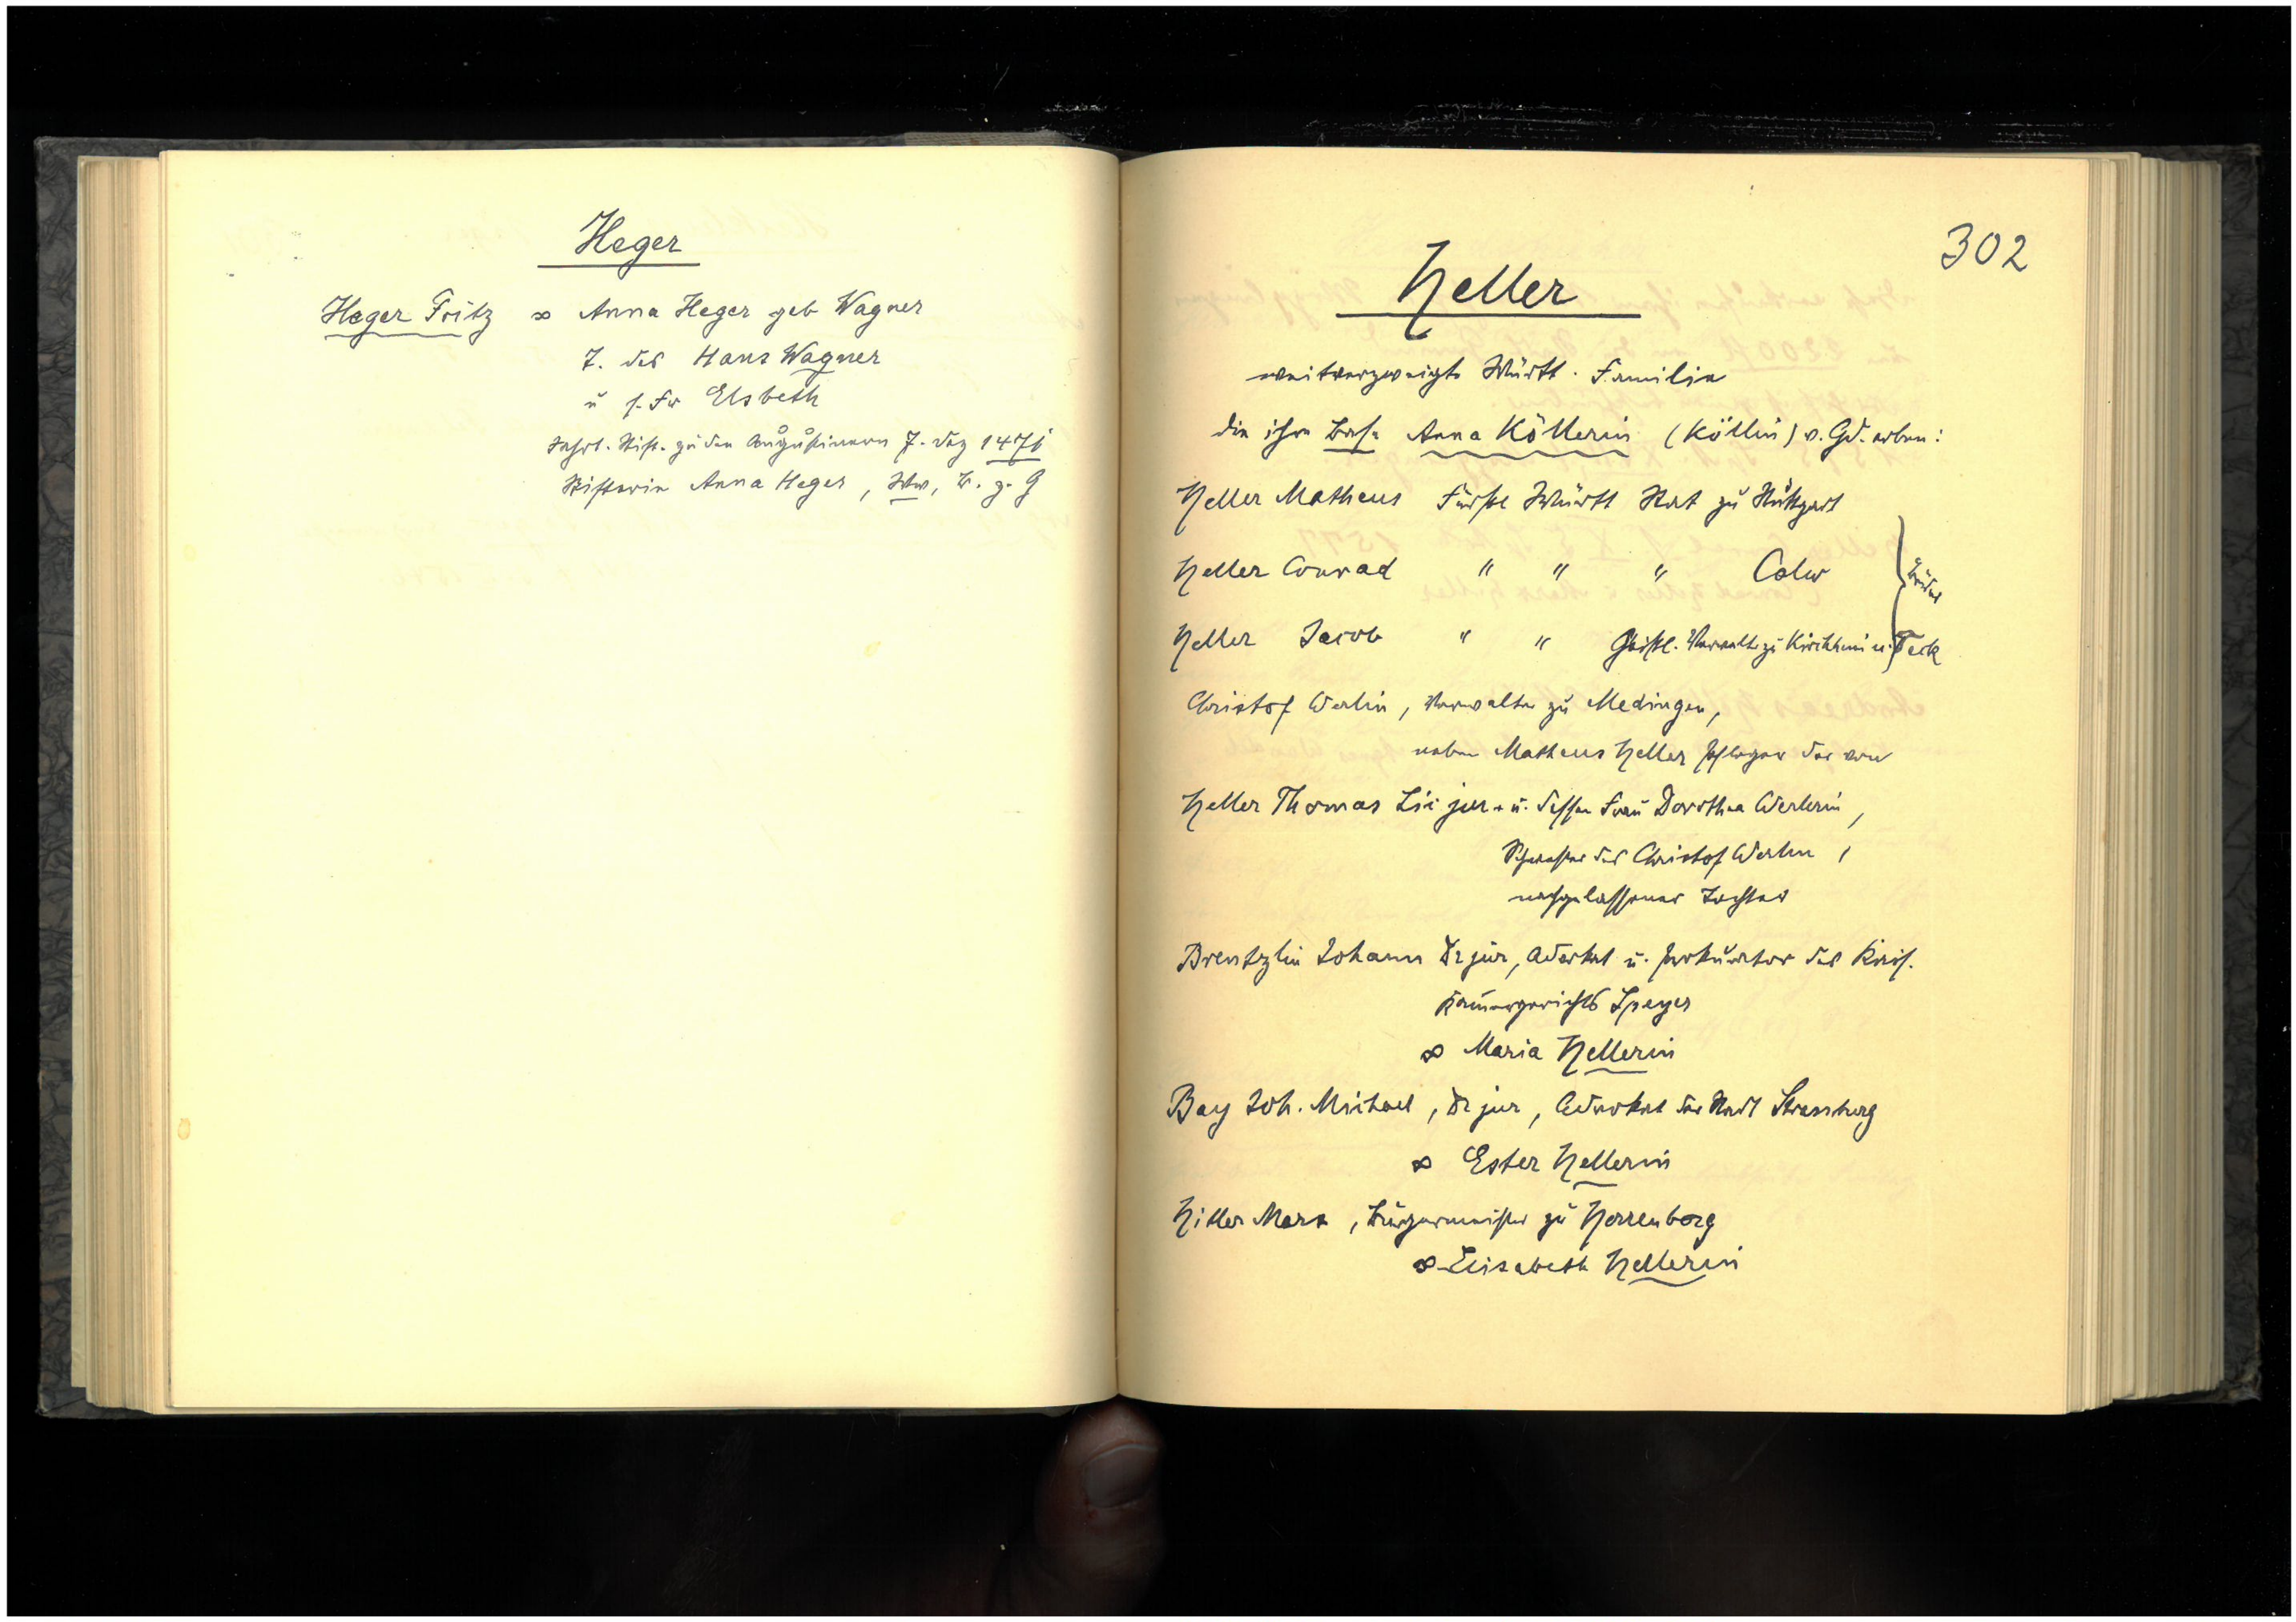 Heger
Heger Fritz ∞ Anna Heger geb Wagner
T. des Hans Wagner
u s. Fr Elsbeth
Jahrt. Stift. zu den Augustinern 7. Dez 1471
Stifterin Anna Heger, Ww, B. z. G
302
Heller
weitverzweigte Württ. Familie
die ihre Base Anna Köllerin (Köllin) v. Gd. erben:
Heller Matheus Fürstl Württ Rat zu Stuttgart
Heller Conrad " " " Calw
Heller Jacob " " Geistl. Verwalter zu Kirchheim u. Teck
Brüder
Christof Werlin, Verwalter zu Medingen,
neben Matheus Heller Pfleger der von
Heller Thomas Lic jur. u. dessen Frau Dorothea Werlerin,
Schwester des Christof Werlin,
nachgelassener Tochter
Brentzlin Johann Dr jur, Advokat u. Prokurator des Kais.
Kammergerichts Speyer
∞ Maria Hellerin
Bay Joh. Michael, Dr jur, Advokat der Stadt Strassburg
∞ Ester Hellerin
Hiller Marx, Bürgermeister zu Herrenberg
∞ Elisabeth Hellerin